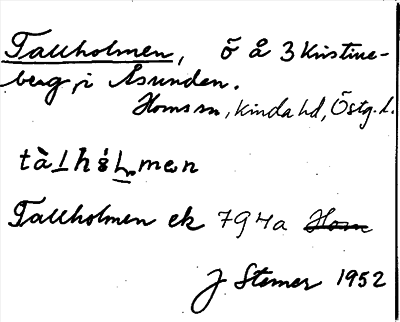 Tallholmen, ö å 3 Kristine-
berg, i Åsunden.
Horns sn, Kinda hd, Östg. l.
Tallholmen ek 794a Horn
J Sterner 1952